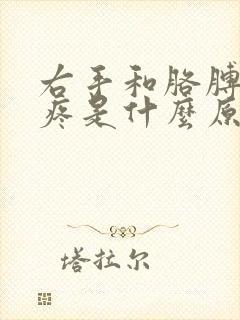 右手和胳膊
疼是什麼原
塔拉尔